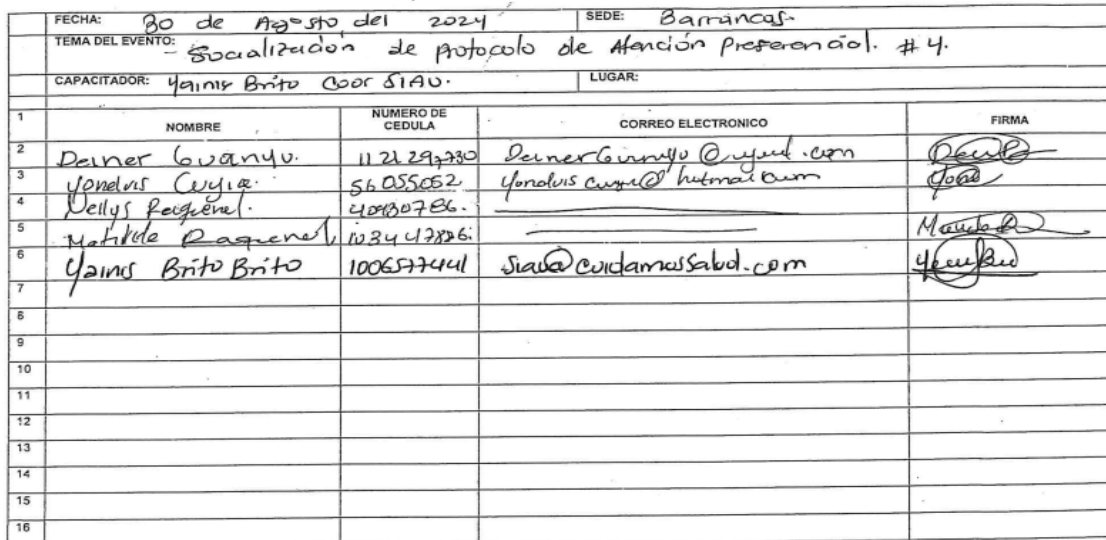 FECHA: 30 de Agosto del 2024 SEDE: Barrancas.
TEMA DEL EVENTO: - Socialización de protocolo de Atención Preferencial. # 4.
CAPACITADOR: Yainis Brito Coor SIAU. LUGAR:
1 NOMBRE NUMERO DE CEDULA CORREO ELECTRONICO FIRMA
2 Deiner 1121297730
3 Yondvis 56055052
4 Nellys 40930786.
5 Matilde Raquenel 1034417826.
6 Yainis Brito Brito 1006577441 siau@cuidamosSalud.com
7
8
9
10
11
12
13
14
15
16